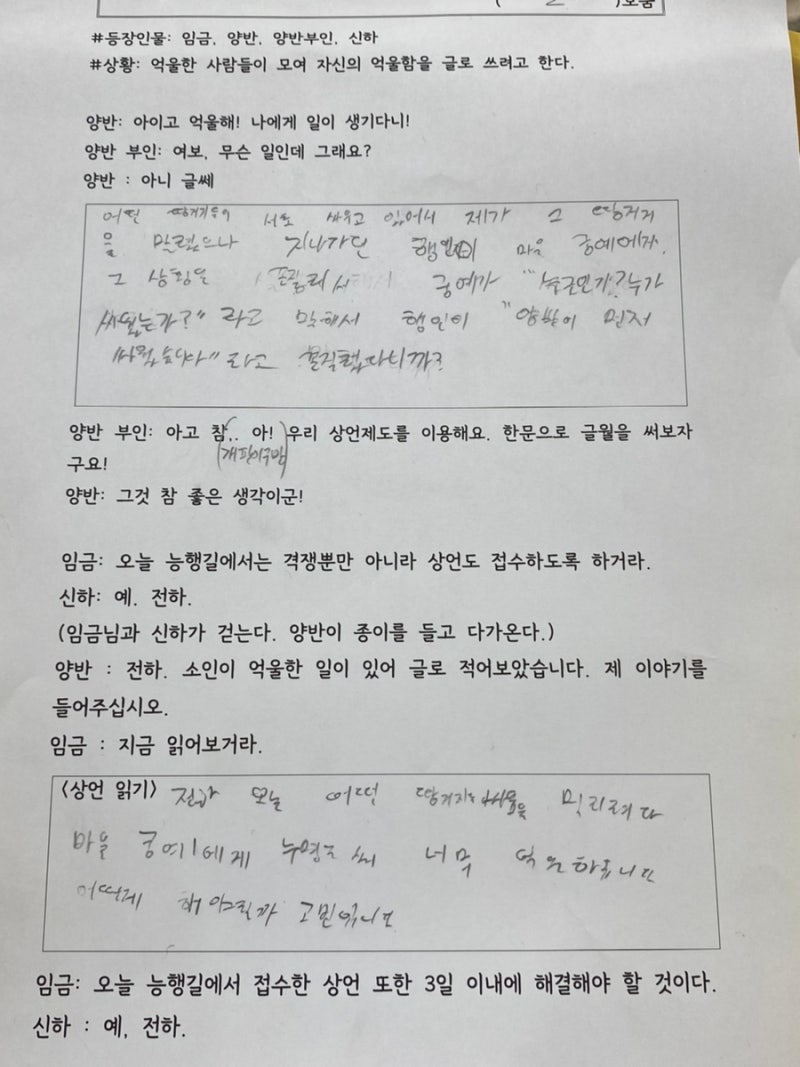 )모둠
#등장인물: 임금, 양반, 양반부인, 신하
#상황: 억울한 사람들이 모여 자신의 억울함을 글로 쓰려고 한다.
양반: 아이고 억울해! 나에게 일이 생기다니!
양반 부인: 여보, 무슨 일인데 그래요?
양반 : 아니 글쎄
어떤 서로 싸우고 있어서 제가 그 땅거지
을 말렸으나 지나가던 행인이 마을
그 상황을 "누군인가? 누가
싸웠는가?" 라고 말해서 행인이 "양반이 먼저
싸웠습니다" 라고
양반 부인: 아고 참.. 아! 우리 상언제도를 이용해요. 한문으로 글월을 써보자
구요!
양반: 그것 참 좋은 생각이군!
임금: 오늘 능행길에서는 격쟁뿐만 아니라 상언도 접수하도록 하거라.
신하: 예. 전하.
(임금님과 신하가 걷는다. 양반이 종이를 들고 다가온다.)
양반 : 전하. 소인이 억울한 일이 있어 글로 적어보았습니다. 제 이야기를
들어주십시오.
임금 : 지금 읽어보거라.
<상언 읽기> 전하 오늘 어떤
마을 에게 누명을 써 너무 억울하옵니다
어떠게 해야될까 고민입니다
임금: 오늘 능행길에서 접수한 상언 또한 3일 이내에 해결해야 할 것이다.
신하 : 예, 전하.